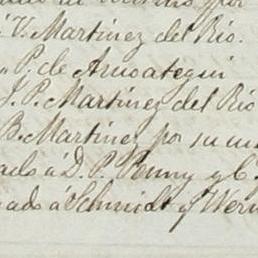 á V. Martinez del Rio.
" P. de Ansoategui
J. P. Martinez del Rio
B. Martinez por su
ado á D. P. Penny y Cª
ado á Schmidt y Wer